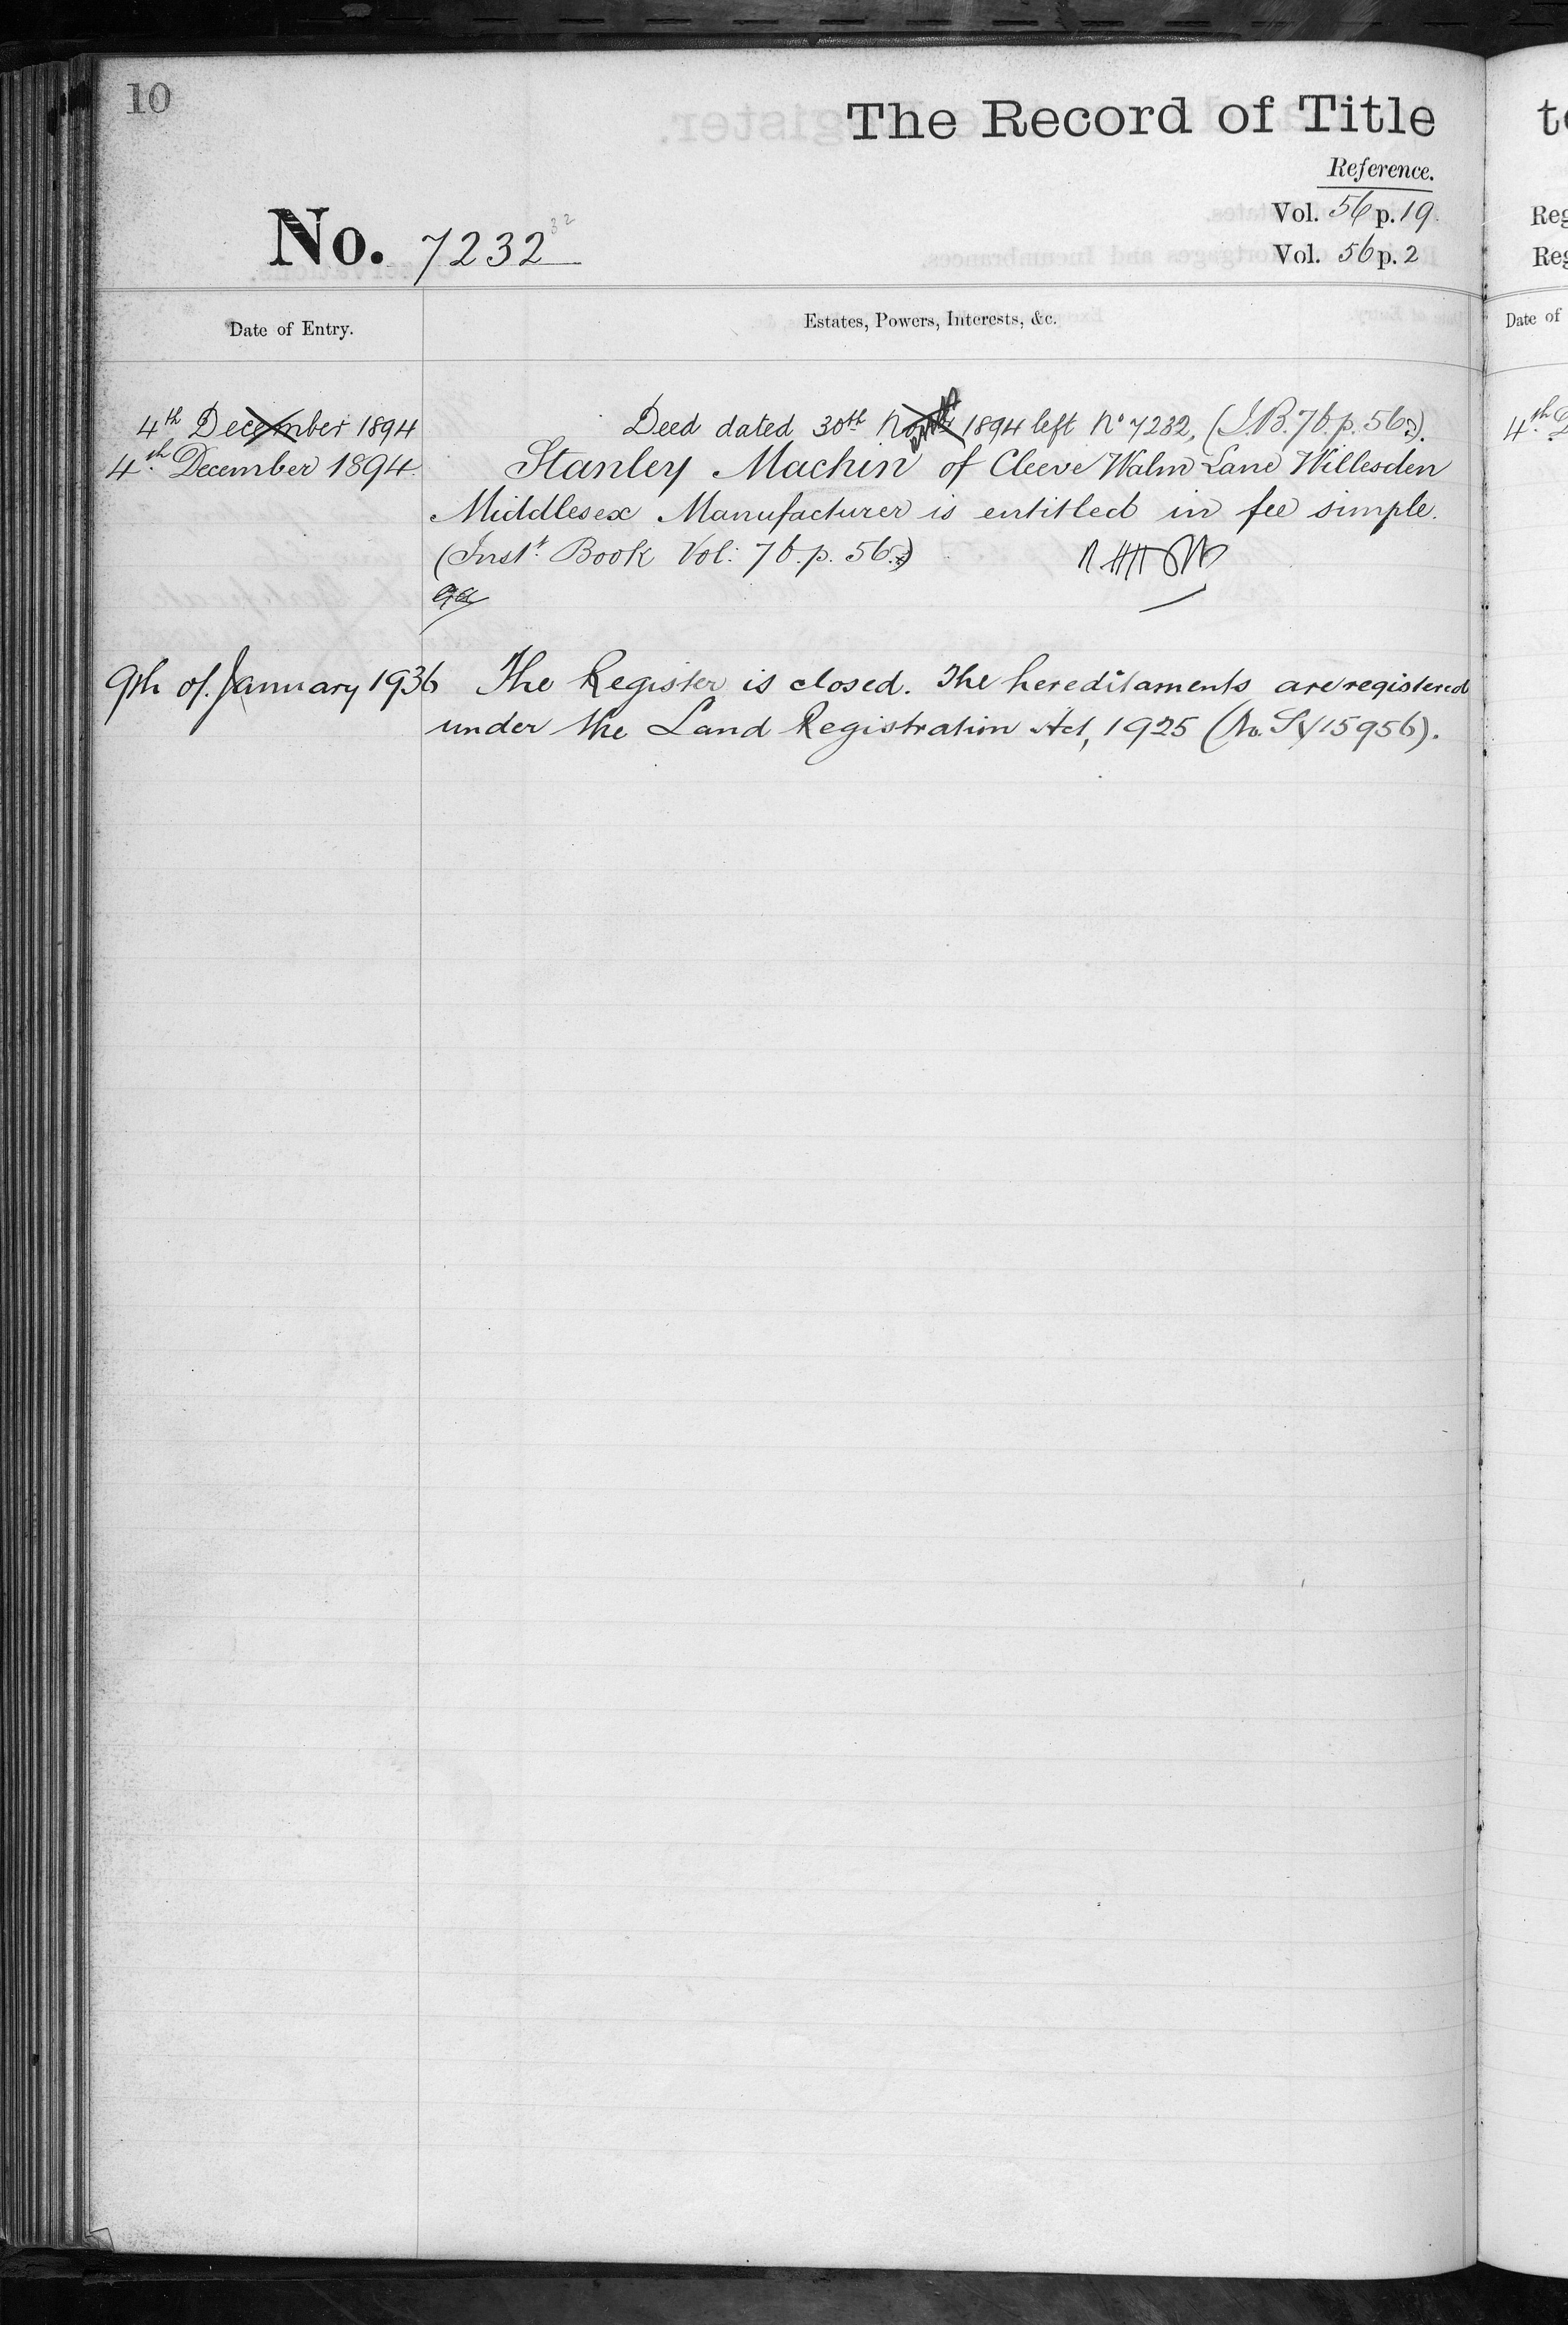 10
The Record of Title
Reference.
Vol. 56 p. 19.
No. 7232
Vol. 56 p. 2
Date of Entry.
Estates, Powers, Interests, &c.
4th December 1894
Deed dated 30th 1894 left No 7232, (I.B. 76. p. 56.).
4th December 1894
Stanley Machin of Cleeve Walm Lane Willesden
Middlesex Manufacturer is entitled in fee simple.
(Inst. Book Vol: 76. p. 56.)
9th of January 1936
The Register is closed. The hereditaments are registered
under the Land Registration Act, 1925 (No. SY15956).
Reg
Reg
Date of
4th D